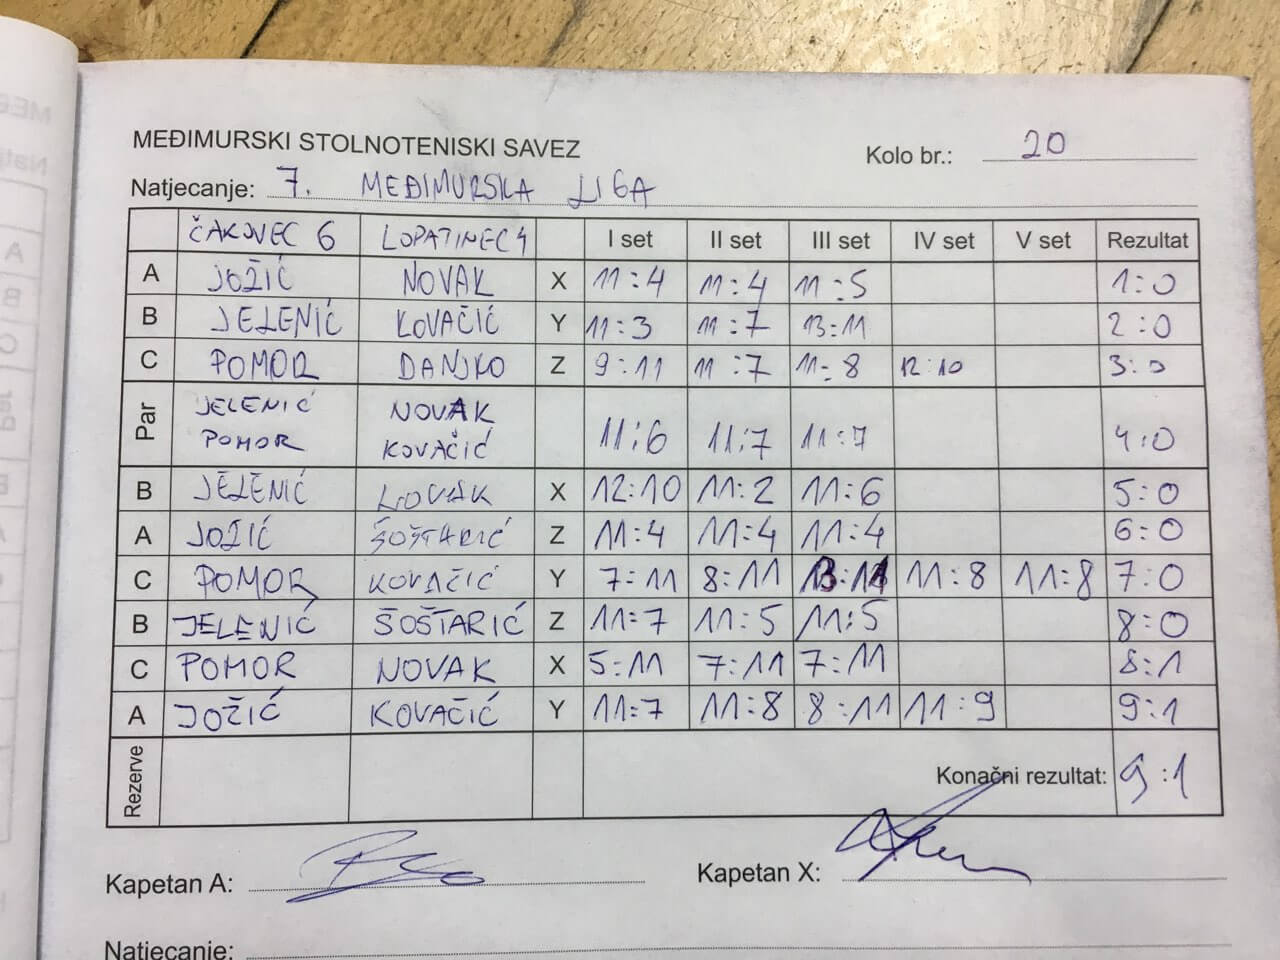 MEĐIMURSKI STOLNOTENISKI SAVEZ
Kolo br.: 20
Natjecanje: 7. MEĐIMURSKA LIGA
ČAKOVEC 6 LOPATINEC 4 I set II set III set IV set V set Rezultat
A JOŽIĆ NOVAK X 11:4 11:4 11:5 1:0
B JELENIĆ KOVAČIĆ Y 11:3 11:7 13:11 2:0
C POMOR DANJKO Z 9:11 11:7 11-8 12:10 3:0
Par JELENIĆ POMOR NOVAK KOVAČIĆ 11:6 11:7 11:7 4:0
B JELENIĆ X 12:10 11:2 11:6 5:0
A JOŽIĆ ŠOŠTARIĆ Z 11:4 11:4 11:4 6:0
C POMOR KOVAČIĆ Y 7:11 8:11 13:11 11:8 11:8 7:0
B JELENIĆ ŠOŠTARIĆ Z 11:7 11:5 11:5 8:0
C POMOR NOVAK X 5:11 7:11 7:11 8:1
A JOŽIĆ KOVAČIĆ Y 11:7 11:8 8:11 11:9 9:1
Rezerve Konačni rezultat: 9:1
Kapetan A: Kapetan X:
Natjecanje: